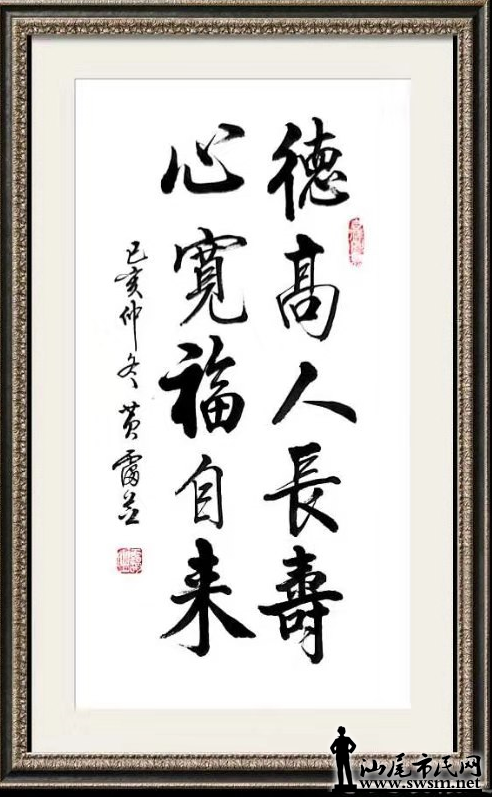 德高人長壽
心寬福自来
己亥仲冬 黄
汕尾市民网
www.swsm.net